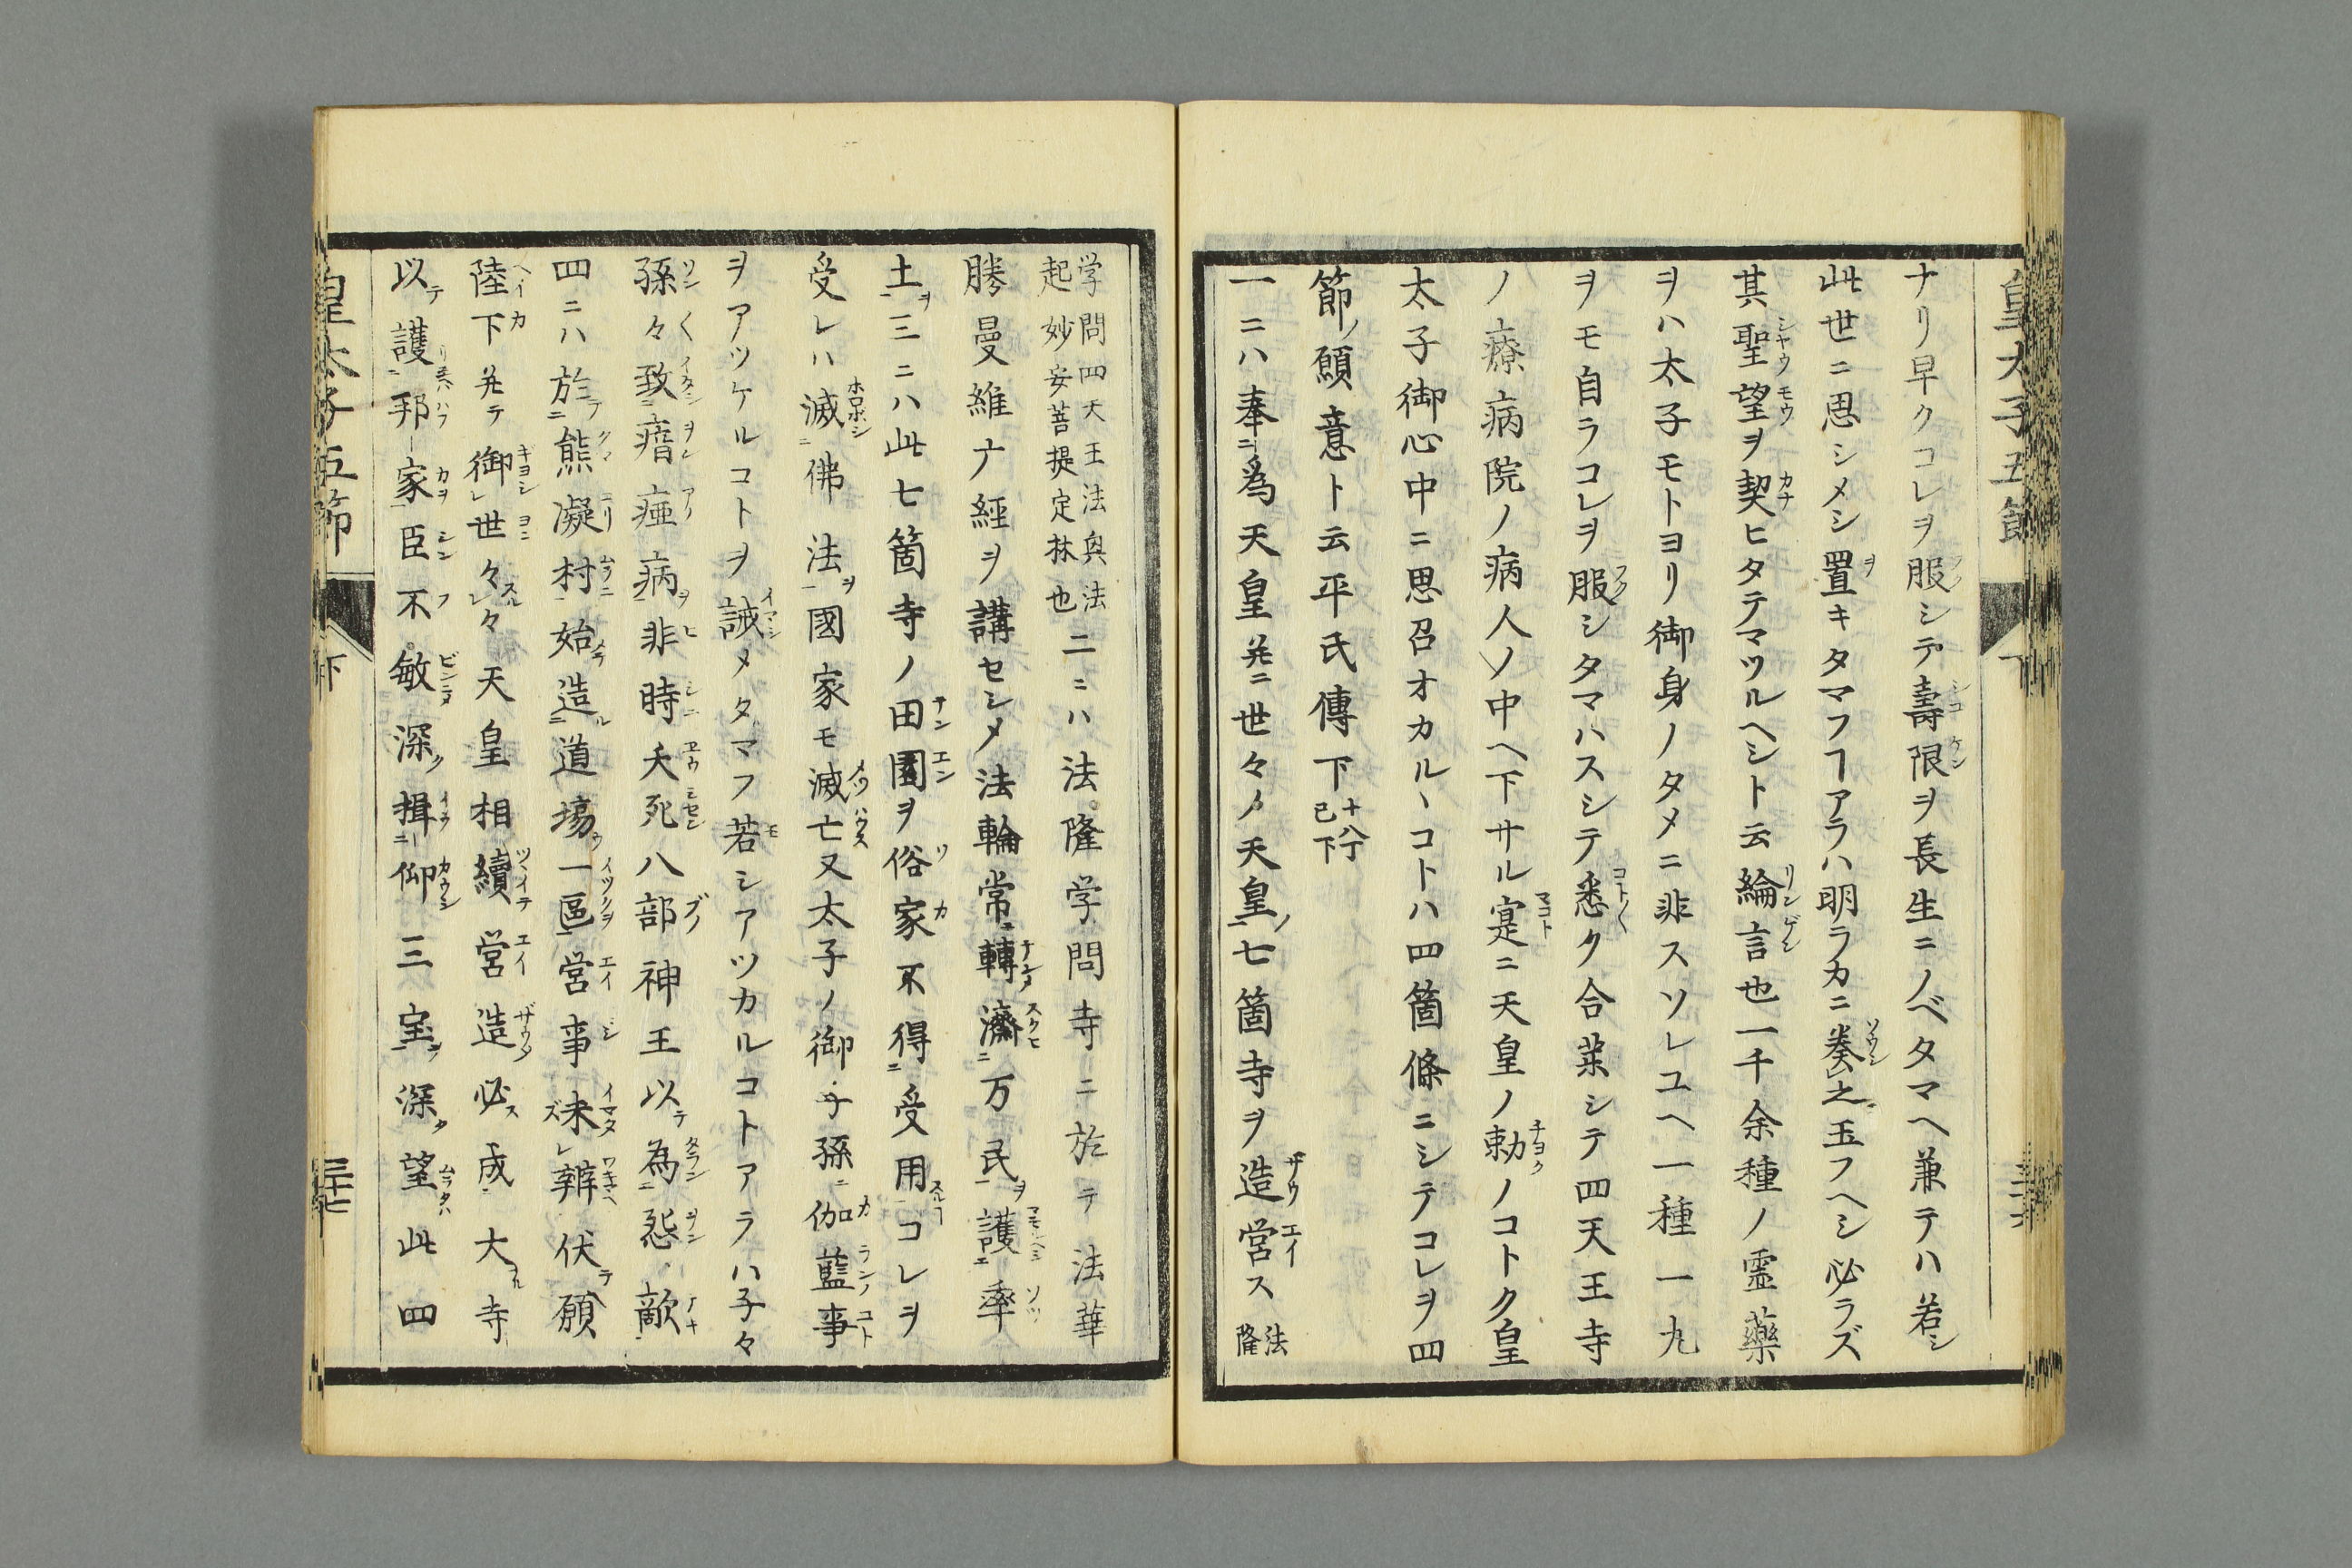 皇太子五節 下
ナリ早クコレヲ服シテ壽限ヲ長生ニノベタマヘ兼テハ若シ
此世ニ思シメシ置キタマフヿアラハ明ラカニ奏之玉フヘシ必ラズ
其聖望ヲ契ヒタテマツルヘシト云綸言也一千余種ノ霊藥
ヲハ太子モトヨリ御身ノタメニ非スソレユヘ一種一丸
ヲモ自ラコレヲ服シタマハスシテ悉ク合藥シテ四天王寺
ノ療病院ノ病人ノ中ヘ下サル寔ニ天皇ノ勅ノコトク皇
太子御心中ニ思召オカルヽコトハ四箇條ニシテコレヲ四
節ノ願意ト云平氏傳下十八丁已下
一ニハ奉為天皇并ニ世々ノ天皇七箇寺ヲ造営ス法隆
学問四天王法奥法起妙安菩提定林也二ニハ法隆学問寺ニ於テ法華
勝曼維广經ヲ講セシメ法輪常轉濟万民護率
土三ニハ此七箇寺ノ田園ヲ俗家不得受用コレヲ
受レハ滅佛法國家モ滅亡又太子ノ御子孫伽藍事
ヲアツケルコトヲ誡メタマフ若シアツカルコトアラハ子々
孫々致瘖瘂病非時夭死八部神王以為怨敵
四ニハ於熊凝村始造道場一區営事未辨伏願
陸下并テ御世々々天皇相續営造必成大寺
以護邦家臣不敏深揖仰三宝深望此四
皇太子五節 下 三十七